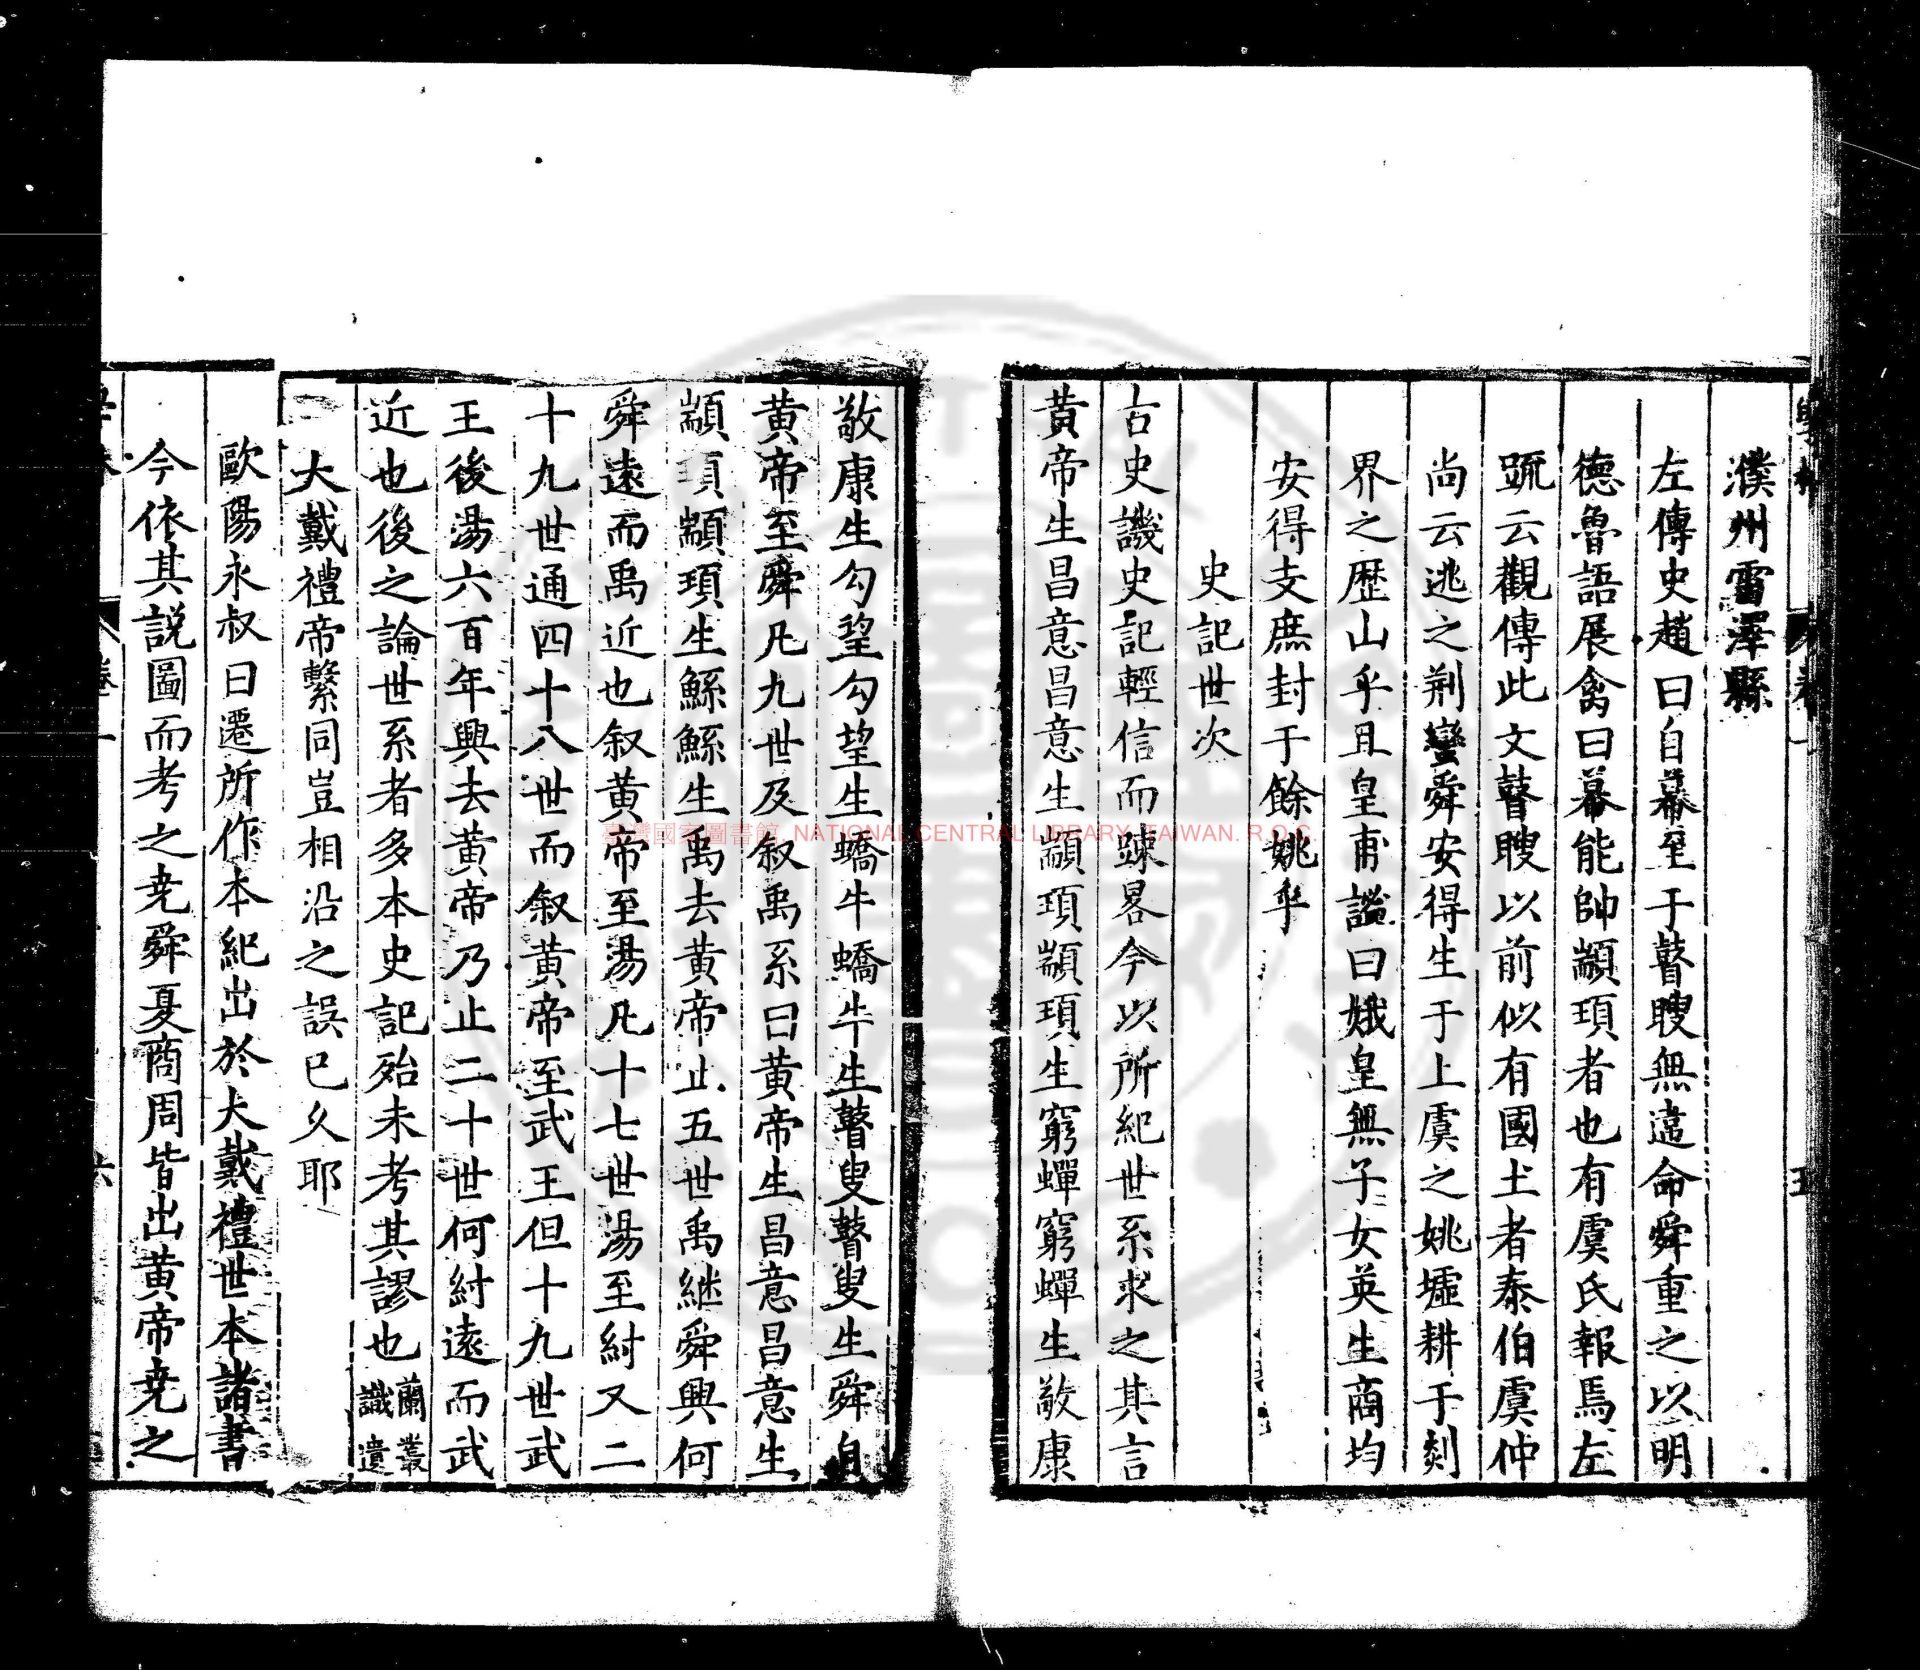 濮州雷澤縣
左傳史趙曰自幕至于瞽瞍無違命舜重之以明
德魯語展禽曰幕能帥顓頊者也有虞氏報焉左
䟽云觀傳此文瞽瞍以前似有國土者泰伯虞仲
尚云逃之荆蠻舜安得生于上虞之姚墟耕于剡
界之歷山乎且皇甫謐曰娥皇無子女英生商均
安得支庶封于餘姚乎
史記世次
古史譏史記輕信而踈畧今以所紀世系求之其言
黃帝生昌意昌意生顓頊顓頊生窮蟬窮蟬生敬康
敬康生勾望勾望生蟜牛蟜牛生瞽叟瞽叟生舜自
黃帝至舜凡九世及叙禹系曰黃帝生昌意昌意生
顓頊顓頊生鯀鯀生禹去黃帝止五世禹继舜興何
舜遠而禹近也叙黃帝至湯凡十七世湯至紂又二
十九世通四十八世而叙黃帝至武王但十九世武
王後湯六百年興去黃帝乃止二十世何紂遠而武
近也後之論世系者多本史記殆未考其謬也蘭叢
識遺
大戴禮帝繫同豈相沿之誤已久耶
歐陽永叔曰遷所作本紀出於大戴禮世本諸書
今依其説圖而考之堯舜夏商周皆出黃帝堯之
臺灣國家圖書館 NATIONAL CENTRAL LIBRARY, TAIWAN. R.O.C.